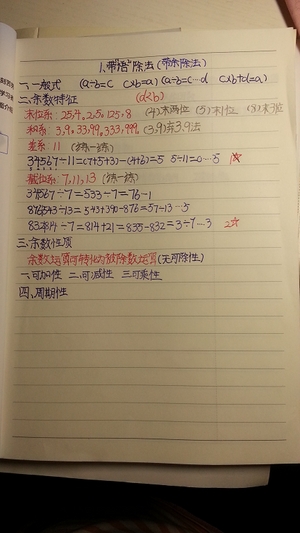 1.带余除法(带余除法)
一、一般式 (a÷b=c c×b=a) (a÷b=c…d c×b+d=a)
二、余数特征 (d<b)
末位系: 25,4, 2,5, 125,8 (4)末两位 (5)末1位 (8)末3位
和系: 3,9,33,99,333,999, (3,9)弃3,9法
差系: 11 (练一练)
34567÷11=(7+5+3)-(4+6)=5 5÷11=0…5 1☆
截位系: 7,11,13 (练一练)
34567÷7=533÷7=76-1
876543÷13=543+390-876=57÷13-5
832814÷7=814+21=835-832=3÷7…3 2☆
三、余数性质
余数运算可转化为被除数运算(无可除性)
一可加性 二可减性 三可乘性
四、周期性